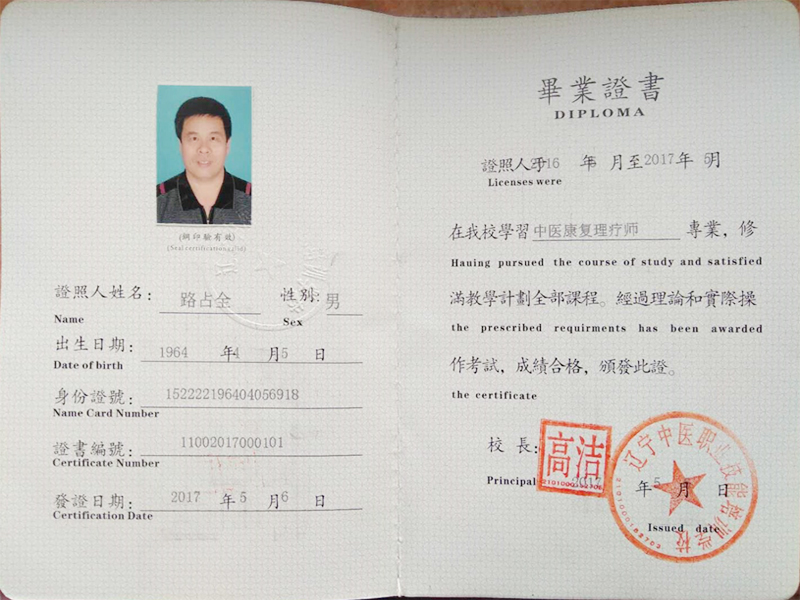 (鋼印驗有效)
(Seal certification valid)
證照人姓名: 路占金 性別: 男
Name Sex
出生日期: 1964 年4 月5 日
Date of birth
身份證號: 152222196404056918
Name Card Number
證書編號: 11002017000101
Certificate Number
發證日期: 2017 年5 月6 日
Certification Date
畢業證書
DIPLOMA
證照人于2016 年5 月至2017年 5月
Licenses were
在我校學習 中医康复理疗师 專業, 修
Hauing pursued the course of study and satisfied
滿教學計劃全部課程。經過理論和實際操
the prescribed requirments has been awarded
作考試, 成績合格, 頒發此證。
the certificate
校長: 高洁
Principal 2017 年5 月 日
Issued date
辽宁中医职业技能培训学校